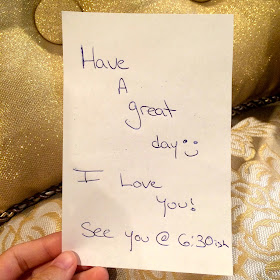 Have
A
great
day :)
I Love
you!
See you @ 6:30ish